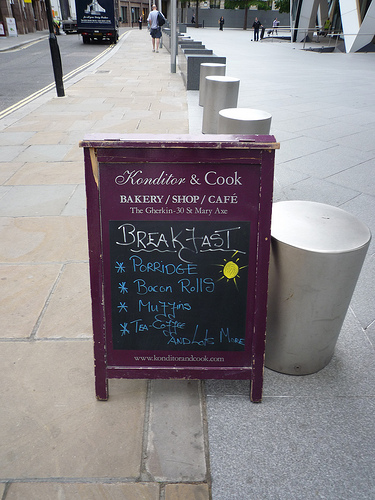 Konditor & Cook
BAKERY / SHOP / CAFÉ
The Gherkin-30 St Mary Axe
BREAKFAST
* PORRIDGE
* Bacon Rolls
* Muffins
* Tea-Coffee
AND Lots More
www.konditorandcook.com